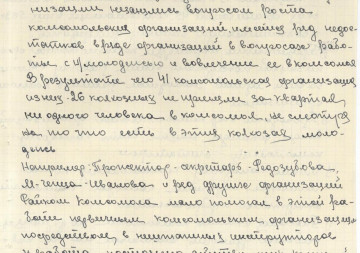 низации занимались вопросом роста
комсомольских организаций имеется ряд недос-
татков в ряде организаций в вопросах рабо-
ты с молодежью и вовлечение ее в комсомол
В результате чего 41 комсомольская организация
из них 26 колхозных не приняли за квартал
ни одного человека в комсомол, не смотря
на то что есть в этих колхозах моло-
дежь
Например: секретарь Федозубова,
Иванова и ряд других организаций
Райком Комсомола мало помогал в этой ра-
боте первичным комсомольским организациям
посредством, внештатных инструкторов